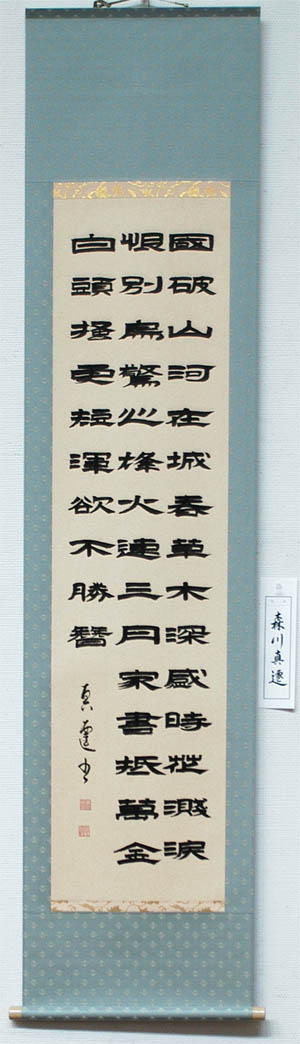 國破山河在城春草木深感時花濺淚
恨別鳥驚心烽火連三月家書抵萬金
白頭搔更短渾欲不勝簪
真遷書
森川真遷